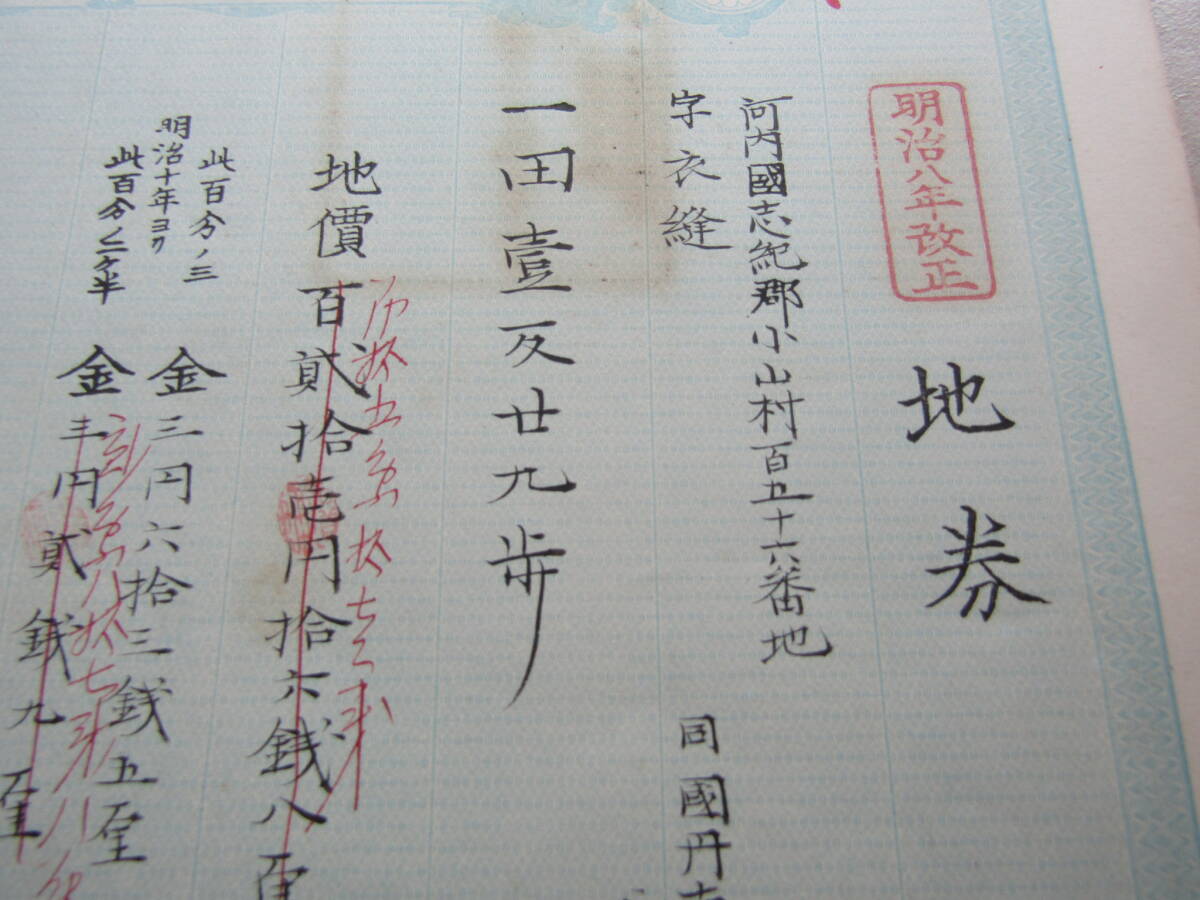 明治八年改正
地券
河内國志紀郡小山村百五十六番地
字衣縫
同國丹
一田壹反廿九歩
地價百貳拾壱円拾六銭八厘
百拾五円拾七銭
此百分ノ三 金三円六拾三銭五厘
明治十年ヨリ
此百分ノ二ケ半 金三円貳銭九厘